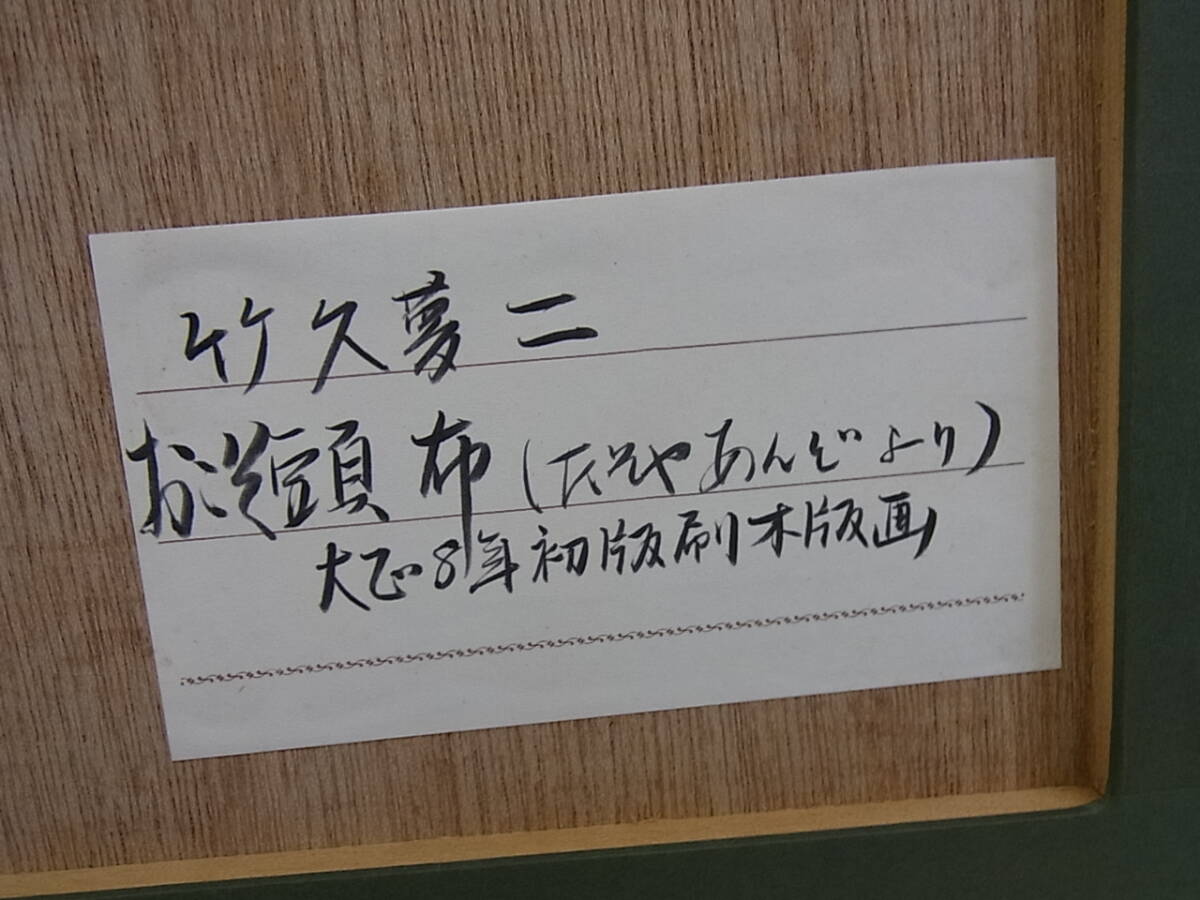 竹久夢二
おこそ頭布(たそやあんどより)
大正8年初版刷木版画